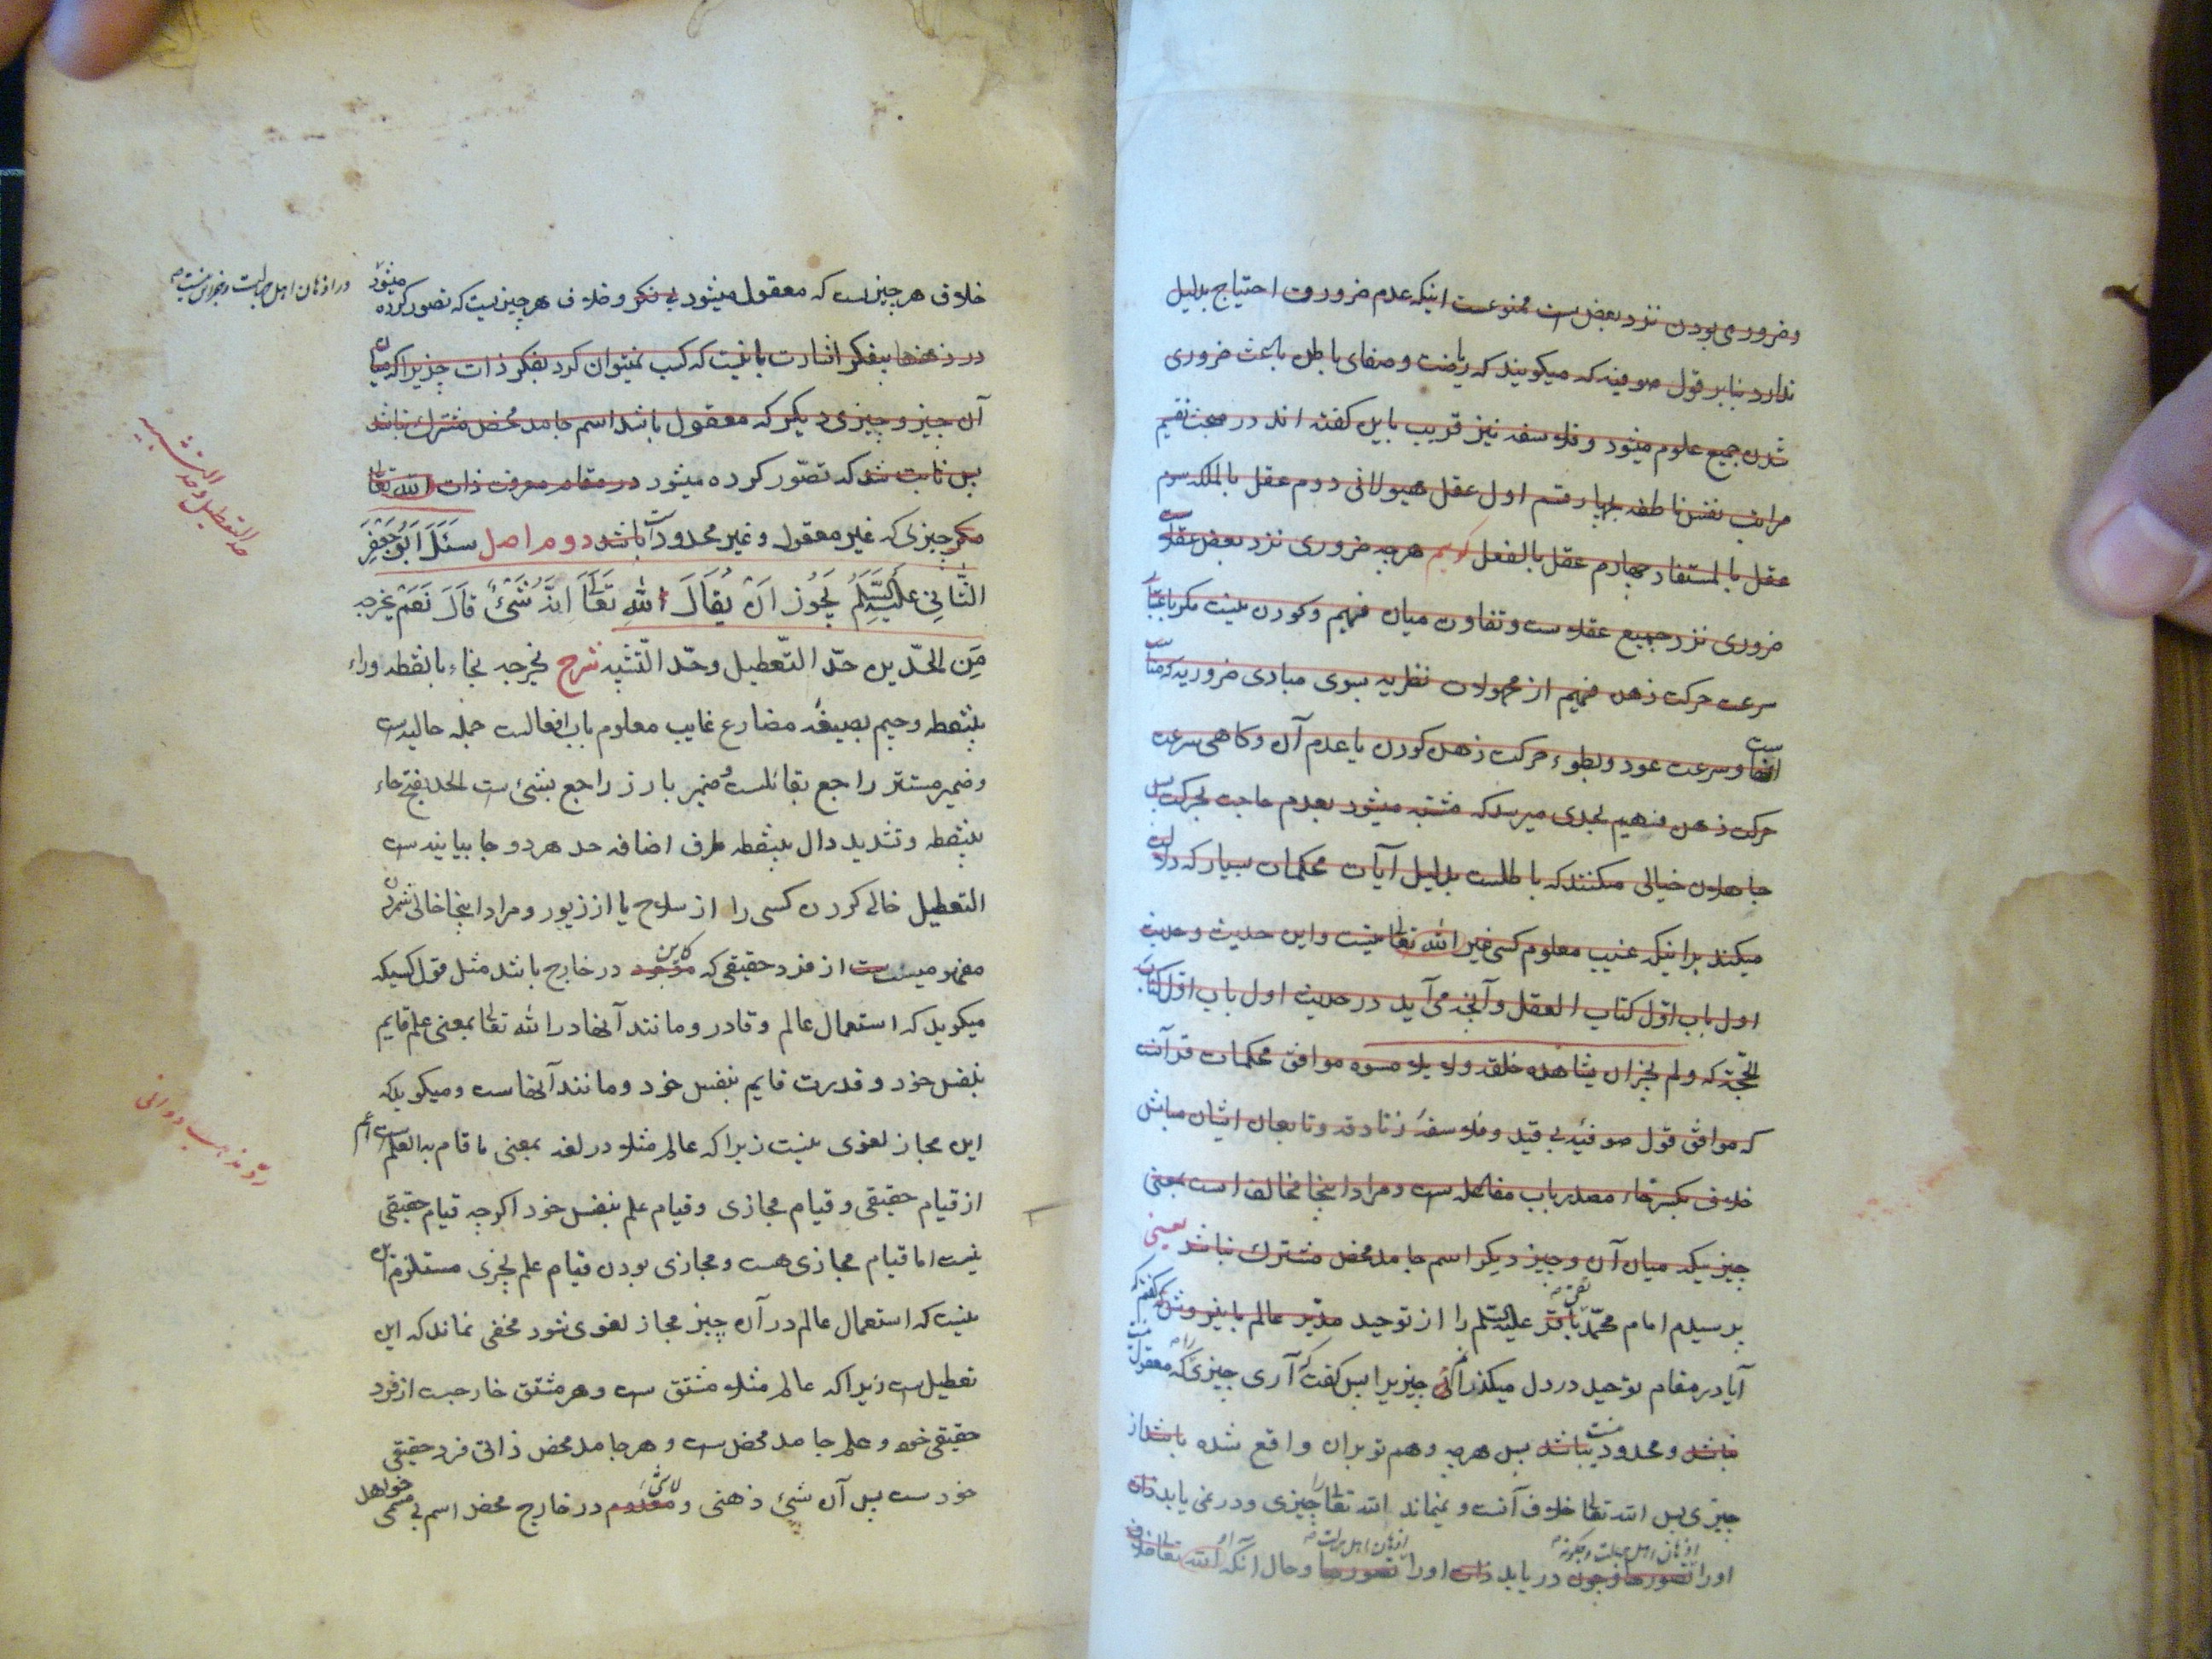 و ضروری بودن نزد بعض ست ممنوعست اینکه عدم ضرورت احتیاج بدلیل
ندارد بنابر قول صوفیه که میگویند که ریاضت و صفای باطن باعث ضروری
شدن جمیع علوم میشود و فلاسفه نیز قریب باین گفته اند در مبحث تقسیم
مراتب نفس ناطقه بچهار قسم اول عقل هیولانی دوم عقل بالملکه سوم
عقل بالمستفاد چهارم عقل بالفعل گوییم هرچه ضروری نزد بعض عقلاست
ضروری نزد جمیع عقلاست و تفاوت میان فهیم و کودن نیست مگر باعتبار
سرعت حرکت ذهن فهیم از مجهولات نظریه بسوی مبادی ضروریه که
و سرعت عود و بطوء حرکت ذهن کودن یا عدم آن و گاهی سرعت
حرکت ذهن فهیم بحدی میرسد که مشتبه میشود بعدم حاجت بحرکت پس
جاهلان خیالی میکنند که باطلست بدلیل آیات محکمات بسیار که دلالت
میکند بر اینکه غیب معلوم کسی غیر الله تعالی نیست و این حدیث و حدیث
اول باب اوّل کتاب العقل و آنچه می آید در حدیث اول باب اوّل کتاب
الحجّة که ولم یجز ان یشاهده خلقه ولا یلامسوه موافق محکمات قرآنست
که موافق قول صوفیّهٔ بی قید و فلاسفهٔ زنادقه و تابعان ایشان مباش
خلاف بکسر خاء مصدر باب مفاعله ست و مراد اینجا مخالف است بمعنی
چیزیکه میان آن و چیز دیگر اسم جامد محض مشترک نباشد یعنی
پرسیدم امام محمّد باقر تقی علیه السّلم را از توحید مدبّر عالم باین روش که گفتم که
آیا در مقام توحید در دل میگذرانم چیزیرا پس گفت که آری چیزی را که معقول نیست
نباشد و محدود نیست نباشد پس هرچه وهم تو بران واقع شده باشد از
چیزی پس الله تعالی خلاف آنست و نمیماند الله تعالی را چیزی و در نمی یابد ذات
اذهان اهل جهالت و چگونه
اذهان اهل جهالت
او را تصورها و چون دریابد ذات او را تصورها و حال آنکه او الله تعالی خلاف
خلاف هر چیزیست که معقول میشود بی فکر و خلاف هر چیزیست که تصور کرده میشود
در اذهان اهل جهالت و جز این نیست
در ذهنها بفکر اشارت باینست که کسب نمیتوان کرد بفکر ذات چیزیرا که میان
آن چیز و چیزی دیگر که معقول باشد اسم جامد محض مشترک نباشد
پس ثابت شد که تصوّر کرده میشود در مقام معرفت ذات الله تعالی
حد التعطیل و حد التشبیه
مگر چیزی که غیر معقول و غیر محدود است باشد دوم اصل سَئَلَ اَبُو جَعْفِرَ
الثَّانِی عَلَیْهِ السَّلَمُ یَجُوزُ اَنْ یُقَالَ للهِ تَعَالَی اِنَّهُ شَیْءٌ قَالَ نَعَمْ یخرجه
مِنَ الحدّین حدّ التّعطیل وحدّ التّشبیه شرح یخرجه بخاء بانقطه و راء
بینقطه و جیم بصیغهٔ مضارع غایب معلوم باب افعالست جمله حالیه ست
و ضمیر مستتر راجع بقائلست و ضمیر بارز راجع بشیء ست الحد بفتح حاء
بینقطه و تشدید دال بینقطه طرف اضافه حد هر دو جا بیانیه ست
التعطیل خالی کردن کسی را از سلاح یا از زیور و مراد اینجا خالی شمردن
مفهومیست از فرد حقیقی که موجود کاین در خارج باشد مثل قول کسیکه
میگوید که استعمال عالم و قادر و مانند آنها در الله تعالی بمعنی علم قایم
بنفس خود و قدرت قایم بنفس خود و مانند آنهاست و میگوید که
ردّ مذهب دوانی
این مجاز لغوی نیست زیرا که عالم مثلا در لغه بمعنی ما قام به العلم ست اعم
از قیام حقیقی و قیام مجازی و قیام علم بنفس خود اگرچه قیام حقیقی
نیست اما قیام مجازی هست و مجازی بودن قیام علم بچیزی مستلزم این
نیست که استعمال عالم در آن چیز مجاز لغوی شود مخفی نماند که این
تعطیل ست زیرا که عالم مثلا مشتق ست و هر مشتق خارجست از فرد
حقیقی خود و علم جامد محض ست و هر جامد محض ذاتی فرد حقیقی
خود ست پس آن شیء ذهنی و معدوم لاشیء در خارج محض اسم بی مسمی خواهد